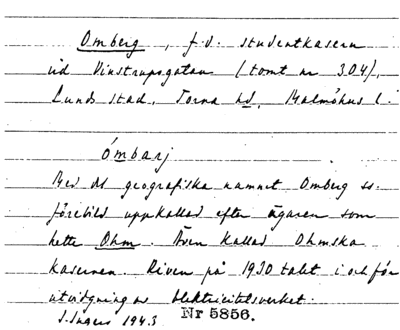 Omberg, f.d. studentkasern
vid Vinstrupsgatan (tomt nr 304),
Lunds stad, Torna hd, Malmöhus l.
ómbarj
Med det geografiska namnet Omberg ss.
förebild uppkallad efter ägaren som
hette Ohm. Även kallad Ohmska
kasernen. Riven på 1930 talet i och för
utvidgning av elektricitetsverket.
S. Ingers 1943
Nr 5856.